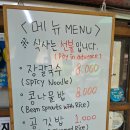 <메뉴 MENU>
※ 식사는 선불입니다.
(Pay in advance.)
장칼국수 8.000
(SPICY Noodle)
콩나물밥 8.000
(Bean sprouts with Rice)
공깃밥 1.000
(Rice)